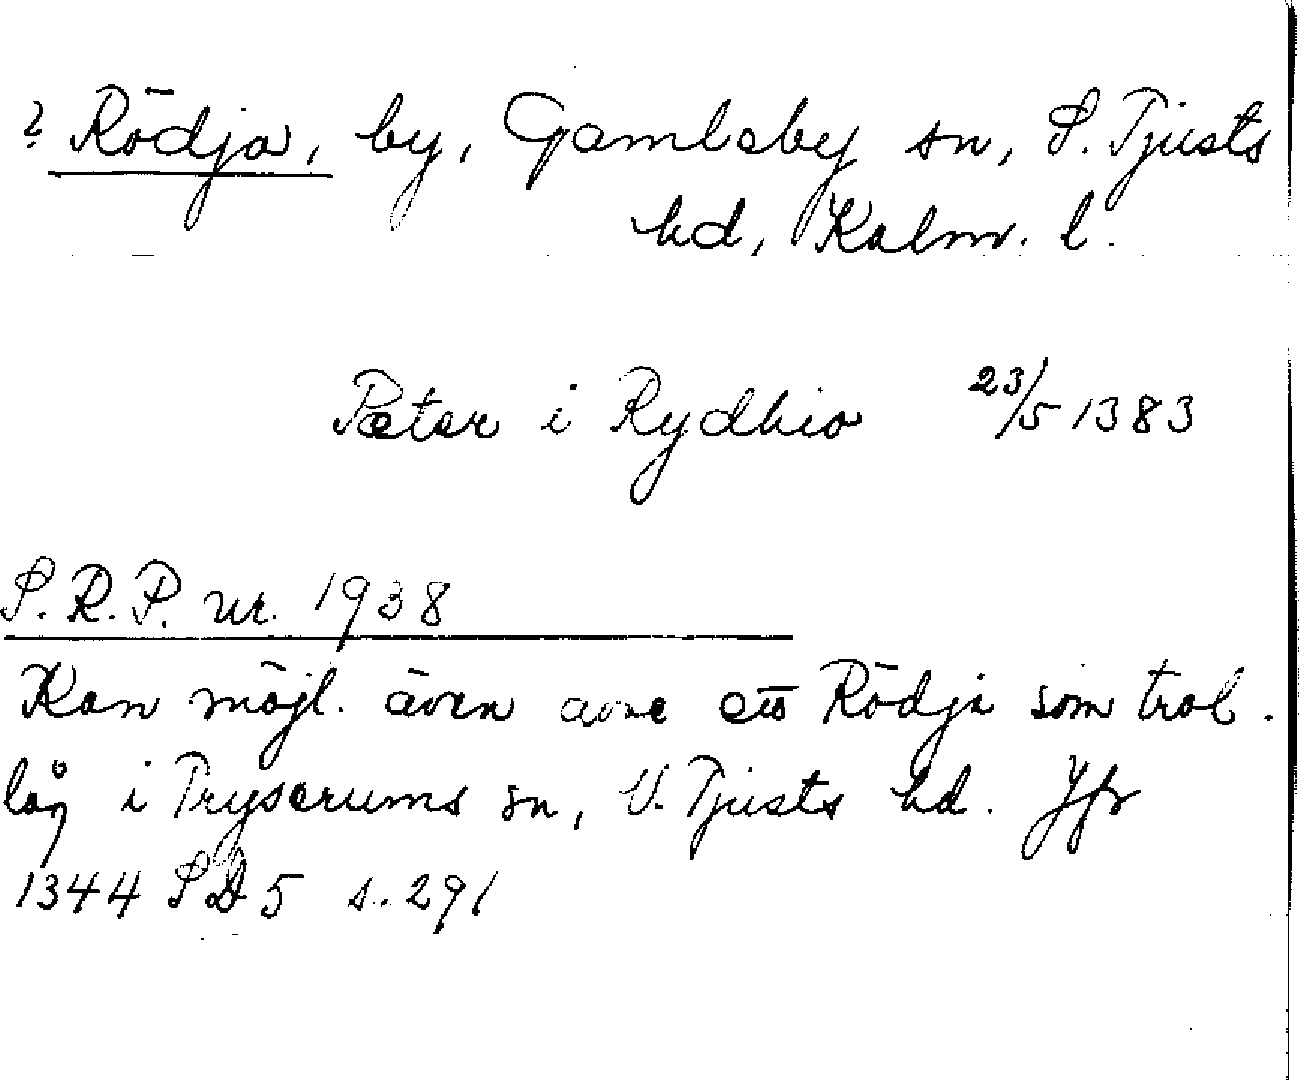 ? Rödja, by, Gamleby sn, S. Tjusts
hd, Kalm. l.
Pæter i Rydhio 23/5 1383
S.R.P. nr. 1938
Kan möjl. även avse ett Rödja som trol.
låg i Tryserums sn, N. Tjusts hd. Jfr
1344 SD 5 s. 291